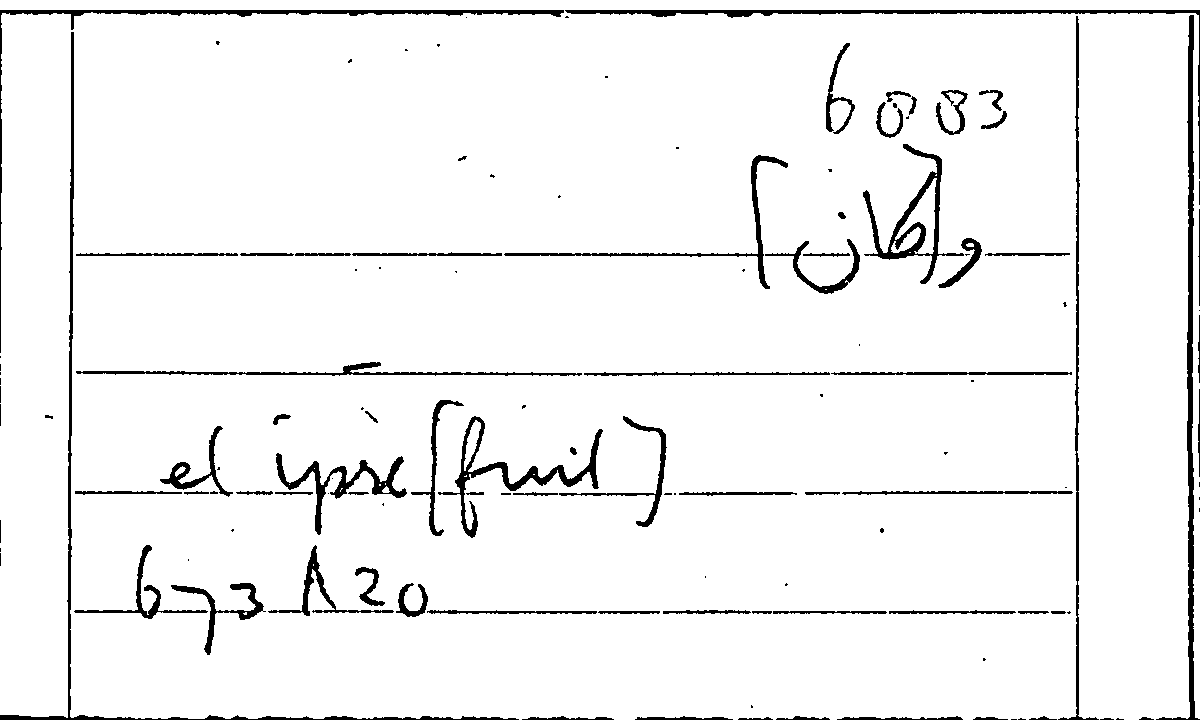 6883
[كان] و
et ipse [fuit]
673 A 20